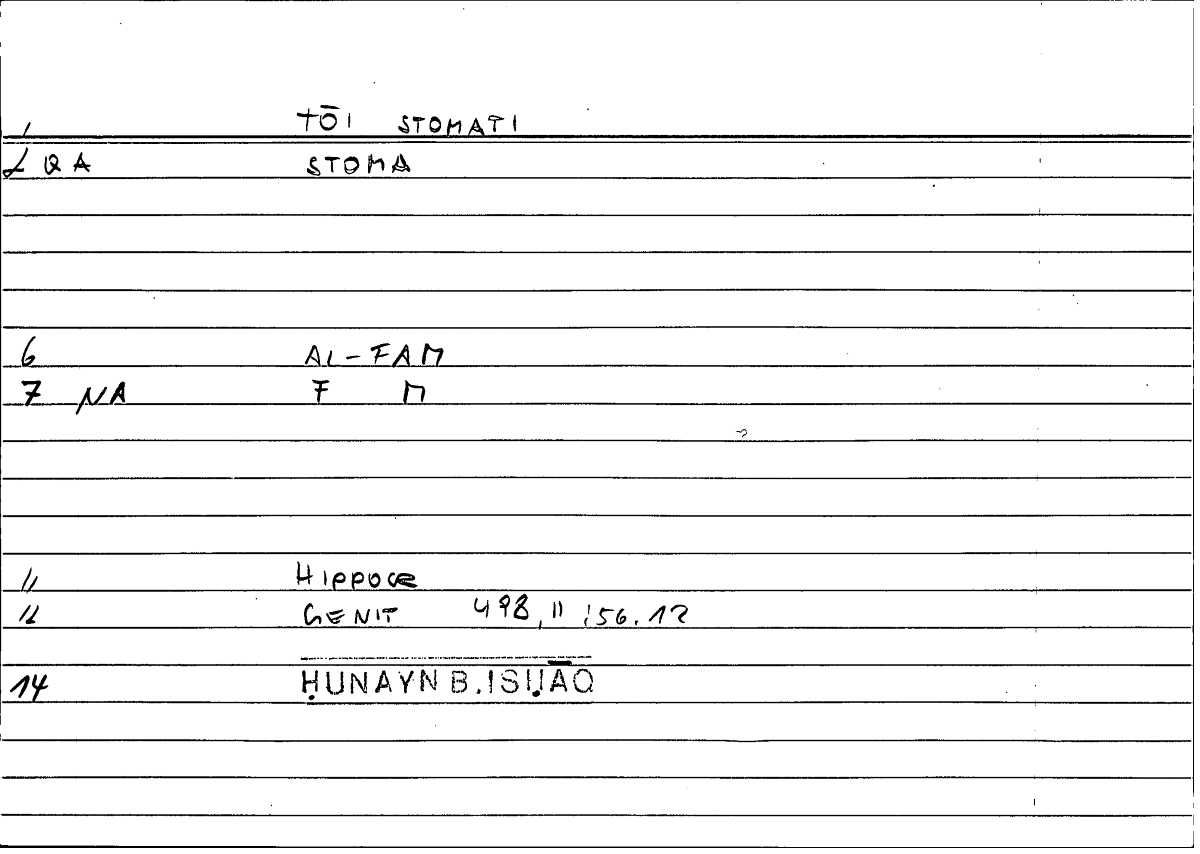 1 TŌI STOMATI
2 Q A STOMA
6 AL-FAM
7 NA F M
11 HIPPOCR
12 GENIT 498,11 ;56.12
14 ḤUNAYN B. ISḤĀQ